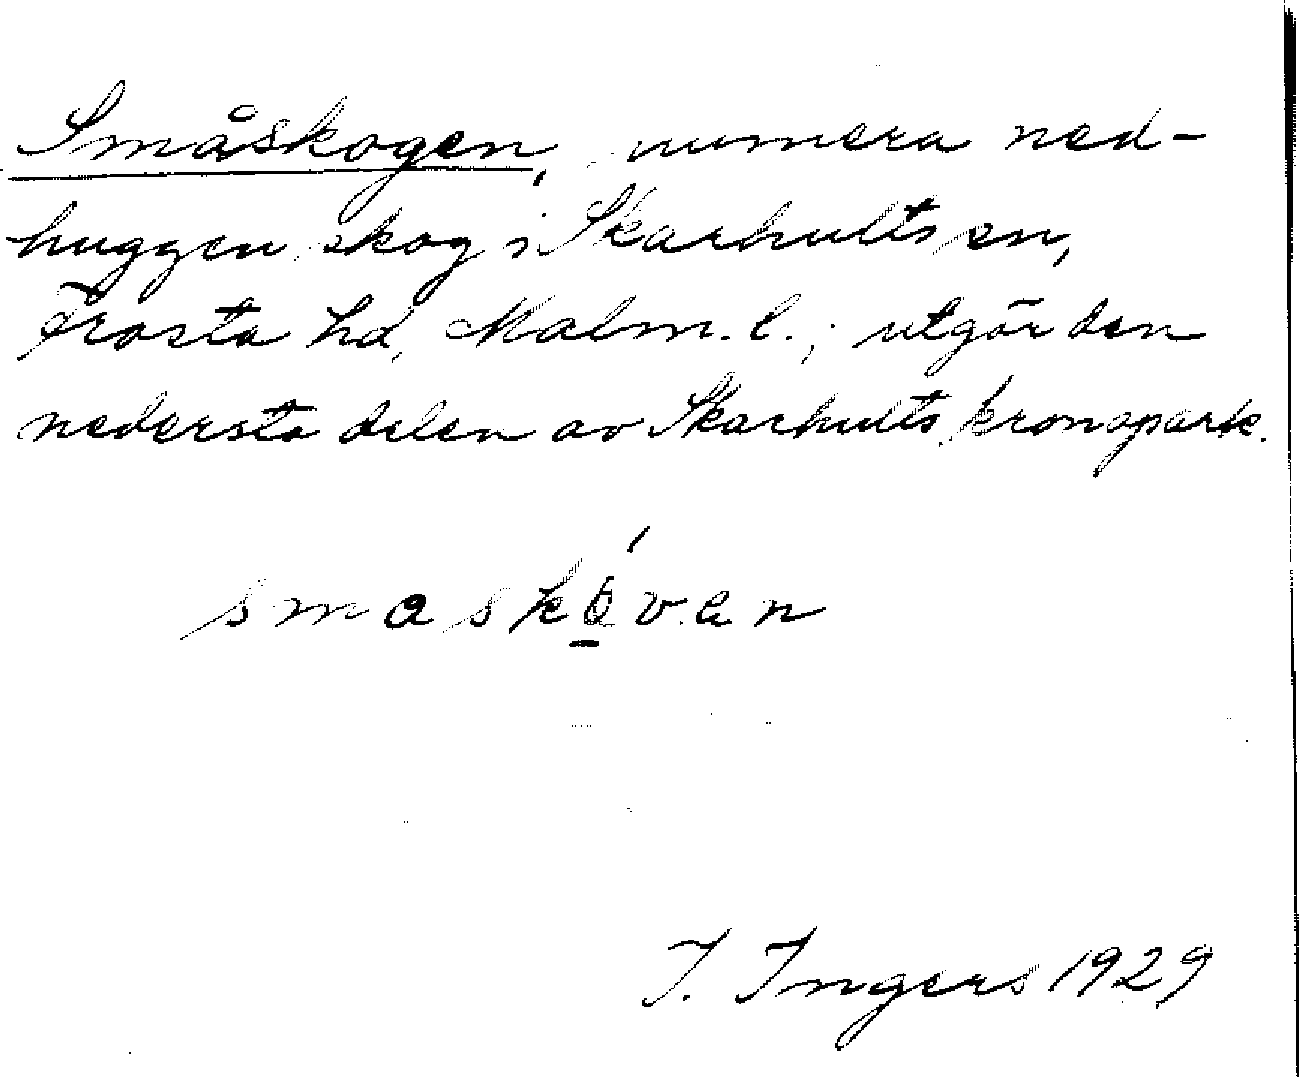 Småskogen, numera ned-
huggen skog i Skarhults sn,
Frosta hd, Malm. l.; utgör den
nedersta delen av Skarhults kronopark.
smaskóvan
I. Ingers 1929